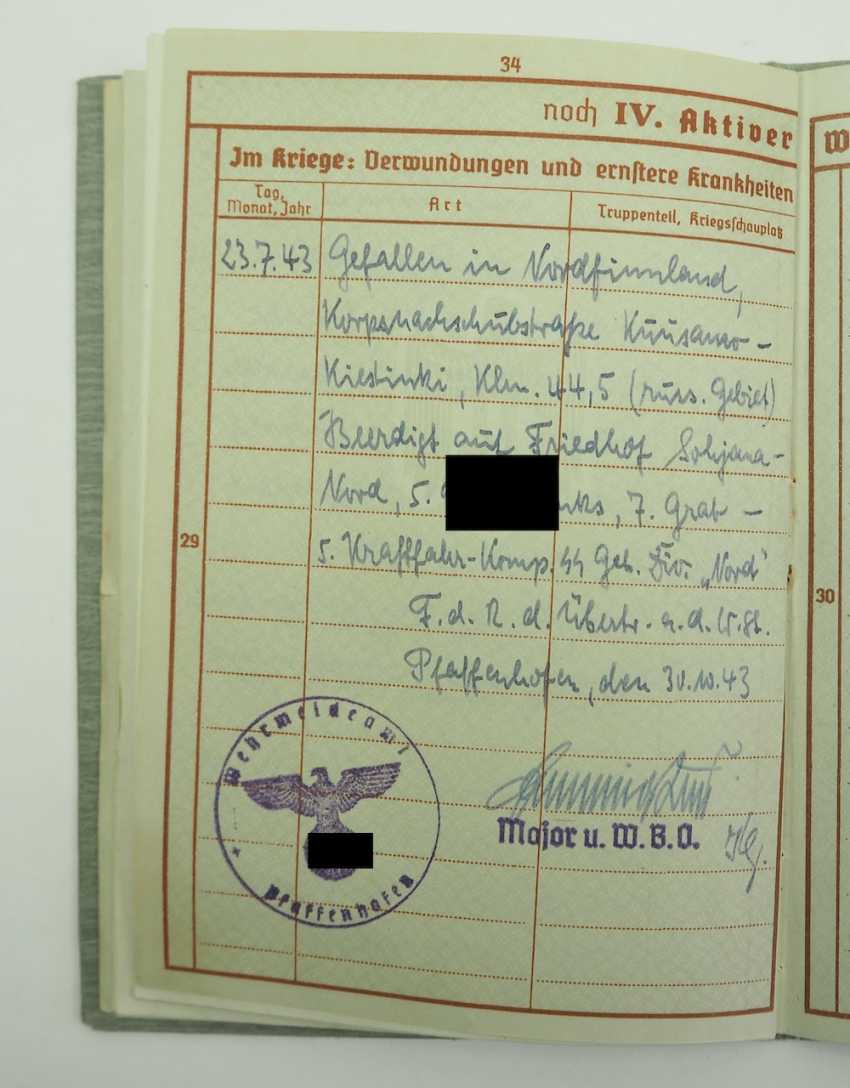 34
noch IV. Aktiver
W
Im Kriege: Verwundungen und ernstere Krankheiten
Tag, Monat, Jahr
Art
Truppenteil, Kriegsschauplatz
23.7.43 Gefallen in Nordfinnland,
Korpsnachschubstraße Kuusamo -
Kiestinki, Klm. 44,5 (russ. Gebiet)
Beerdigt auf Friedhof Sohjana-
Nord, 5. nks, 7. Grab -
29
5. Kraftfahr-Komp. SS Geb. Div. „Nord"
30
F. d. R. d. Übertr. a. d. W.St.
Pfaffenhofen, den 30.10.43
Wehrmeldeamt
Pfaffenhofen
Major u. W.B.O.